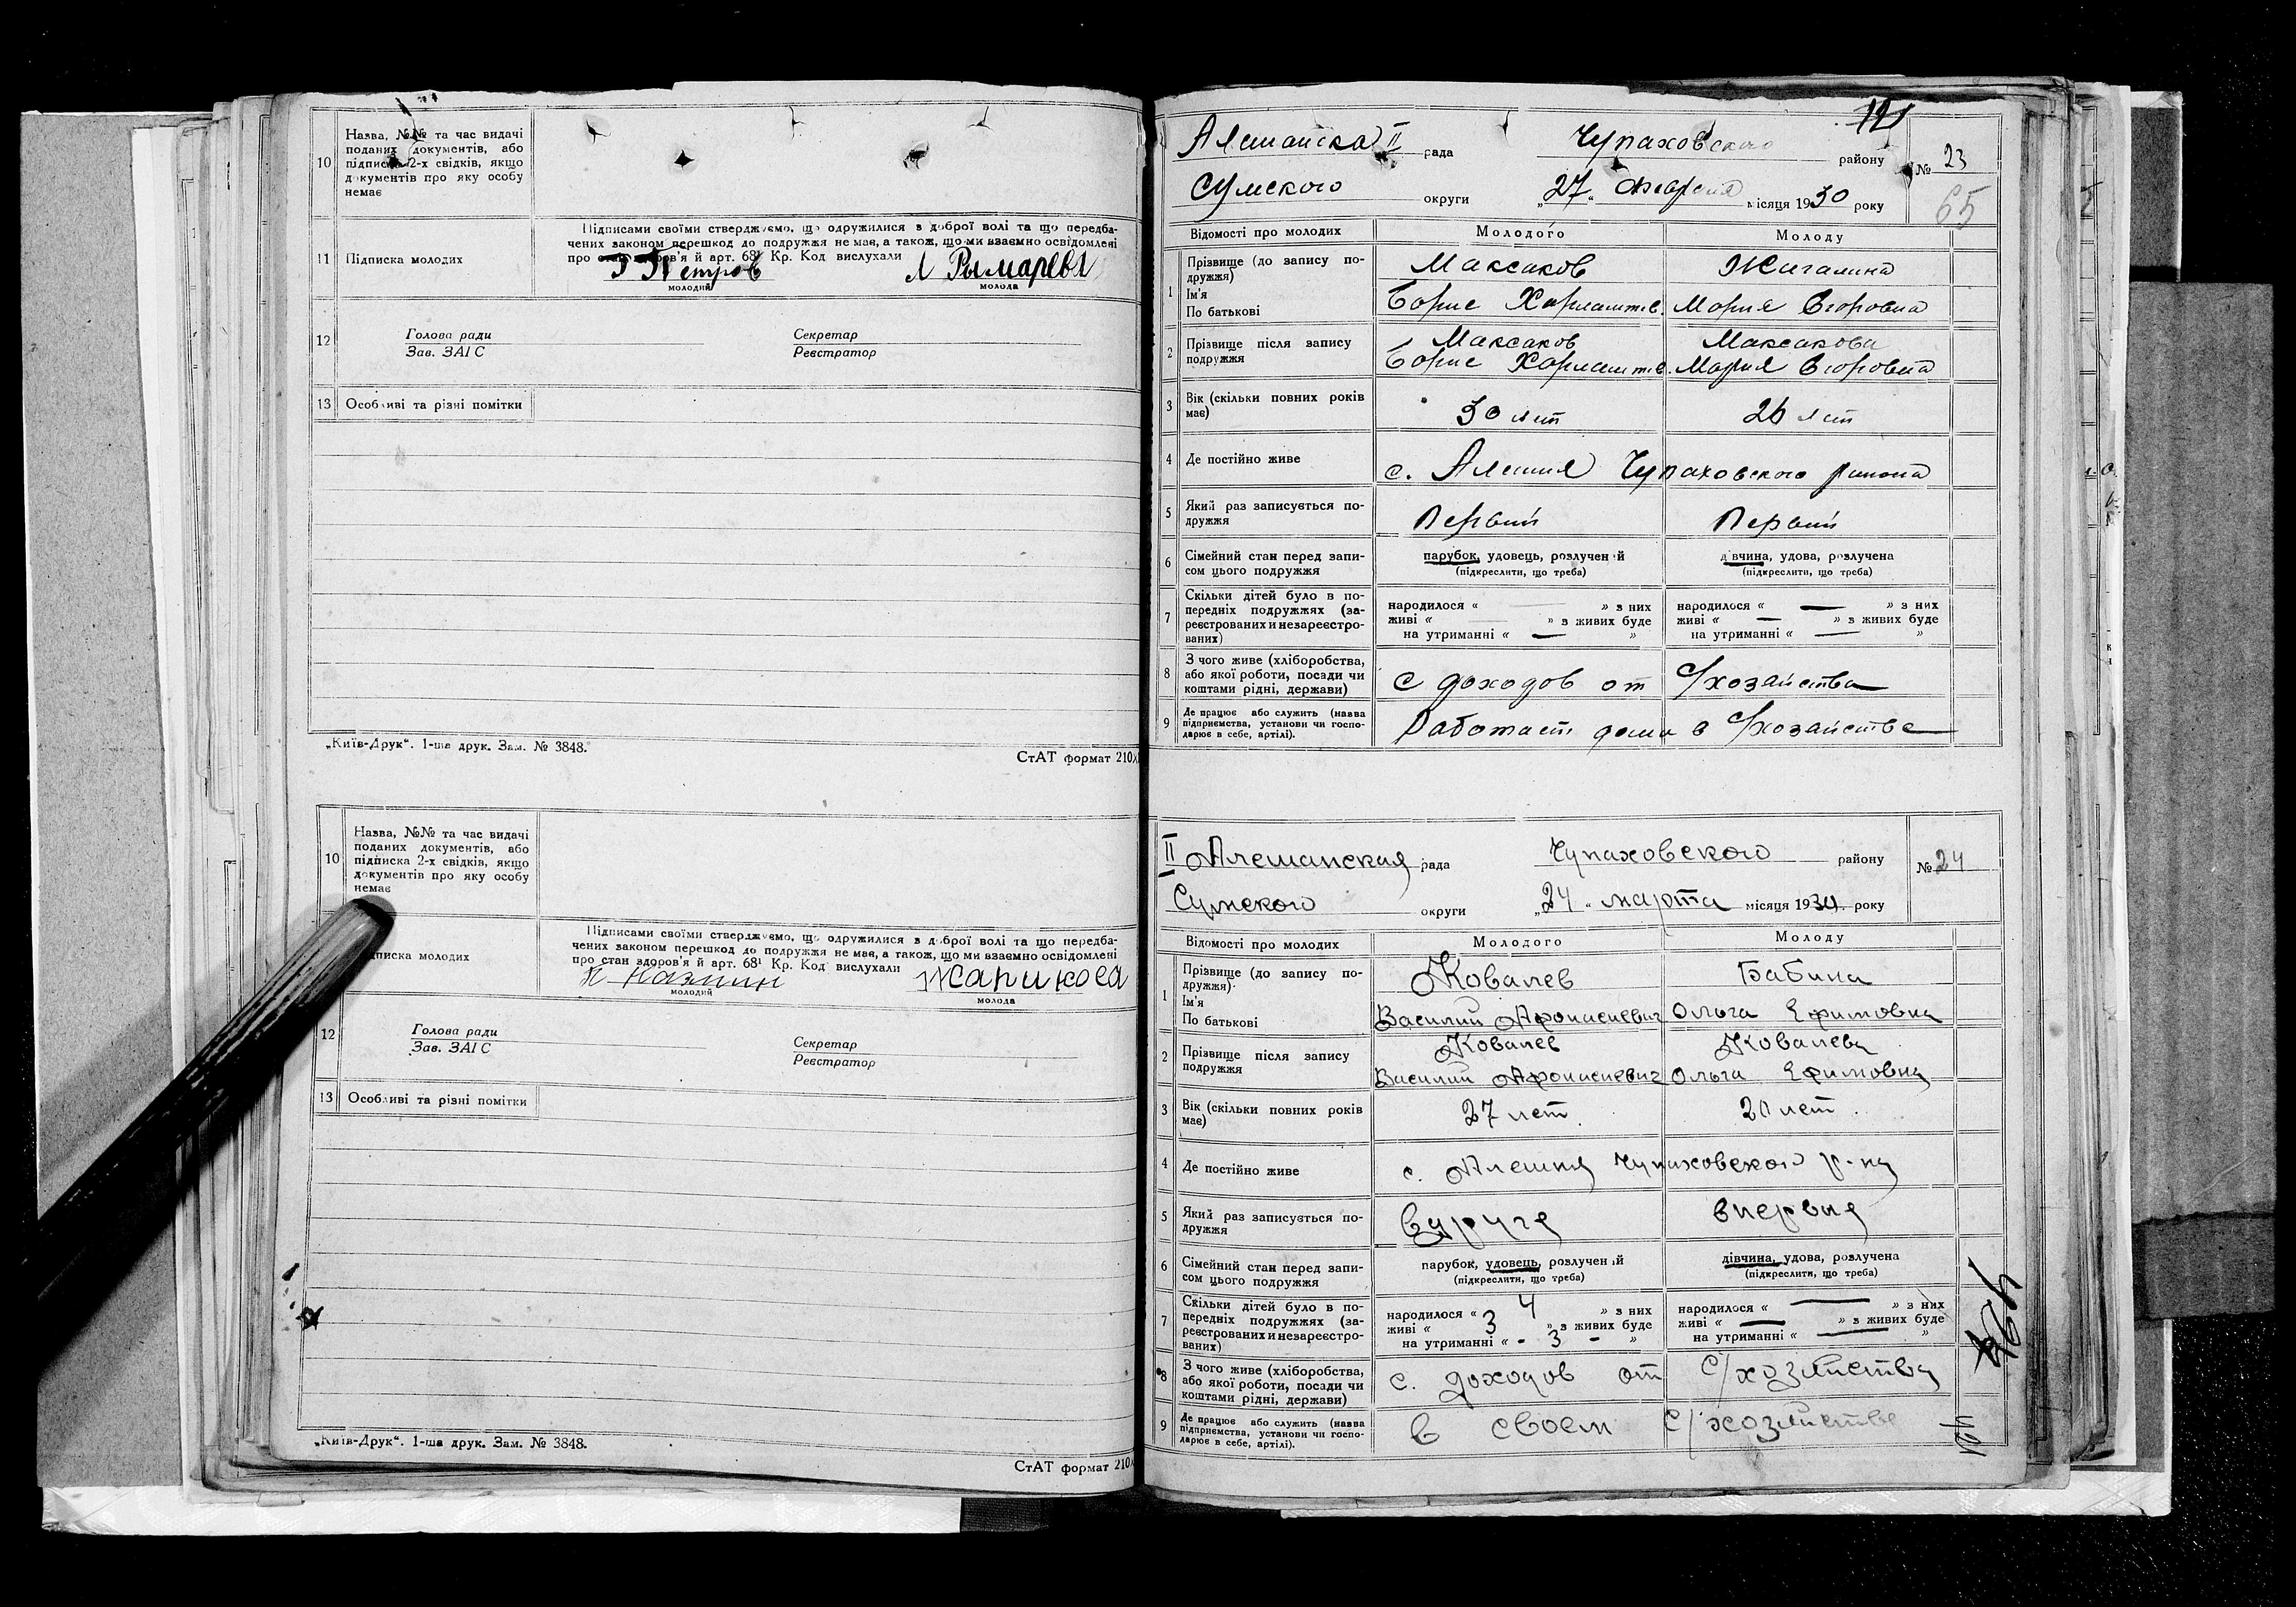 10
Назва, №№ та час видачі
поданих документів, або
підписка 2-х свідків, якщо
документів про яку особу
немає
11 Підписка молодих
Підписами своїми стверджуємо, що одружилися з доброї волі та що передба-
чених законом перешкод до подружжя не має, а також, що ми взаємно освідомлені
про стан здоров'я й арт. 68¹ Кр. Код вислухали
Петров
молодий
Рымарева
молода
12
Голова ради
Зав. ЗАГС
Секретар
Реєстратор
13 Особливі та різні помітки
„Київ-Друк“. 1-ша друк. Зам. № 3848.
СтАТ формат 210
10
Назва, №№ та час видачі
поданих документів, або
підписка 2-х свідків, якщо
документів про яку особу
немає
дписка молодих
Підписами своїми стверджуємо, що одружилися з доброї волі та що передба-
чених законом перешкод до подружжя не має, а також, що ми взаємно освідомлені
про стан здоров'я й арт. 68¹ Кр. Код вислухали
молодий
Жарикова
молода
12
Голова ради
Зав. ЗАГС
Секретар
Реєстратор
13 Особливі та різні помітки
„Київ-Друк“. 1-ша друк. Зам. № 3848.
СтАТ формат 210
II рада Чупаховского району № 23
Сумского округи „27“ февраля місяця 1930 року
65
Відомості про молодих Молодого Молоду
1 Прізвище (до запису по-
дружжя) Максаков Жигалина
Ім'я
По батькові Борис Мария Егоровна
2 Прізвище після запису
подружжя Максаков Максакова
Борис Мария Егоровна
3 Вік (скільки повних років
має) 30 лет 26 лет
4 Де постійно живе с. Алешня Чупаховского района
5 Який раз записується по-
дружжя Первый Первый
6 Сімейний стан перед запи-
сом цього подружжя
парубок, удовець, розлучений
(підкреслити, що треба)
дівчина, удова, розлучена
(підкреслити, що треба)
7 Скільки дітей було в по-
передніх подружжях (за-
реєстрованих и незареєстро-
ваних)
народилося « — » з них
живі « — » з живих буде
на утриманні « — »
народилося « — » з них
живі « — » з живих буде
на утриманні « — »
8 З чого живе (хліборобства,
або якої роботи, посади чи
коштами рідні, держави) с доходов от с/хозайства
9 Де працює або служить (назва
підприємства, установи чи госпо-
дарює в себе, артілі). Работает дома в с/хозайстве
II Алешанская рада Чупаховского району № 24
Сумского округи „24“ марта місяця 1930. року
Відомості про молодих Молодого Молоду
1 Прізвище (до запису по-
дружжя) Ковалев Бабина
Ім'я
По батькові Василий Афонасиевич Ольга Ефимовна
2 Прізвище після запису
подружжя Ковалев Ковалева
Василий Афонасиевич Ольга Ефимовна
3 Вік (скільки повних років
має) 27 лет 20 лет.
4 Де постійно живе с. Алешня Чупаховского р-на
5 Який раз записується по-
дружжя впервые
6 Сімейний стан перед запи-
сом цього подружжя
парубок, удовець, розлучений
(підкреслити, що треба)
дівчина, удова, розлучена
(підкреслити, що треба)
7 Скільки дітей було в по-
передніх подружжях (за-
реєстрованих и незареєстро-
ваних)
народилося « 4 » з них
живі « 3 » з живих буде
на утриманні « - 3 - »
народилося « — » з них
живі « — » з живих буде
на утриманні « — »
8 З чого живе (хліборобства,
або якої роботи, посади чи
коштами рідні, держави) с. доходов от с/хозяйства
9 Де працює або служить (назва
підприємства, установи чи госпо-
дарює в себе, артілі). в своем с/хозяйстве